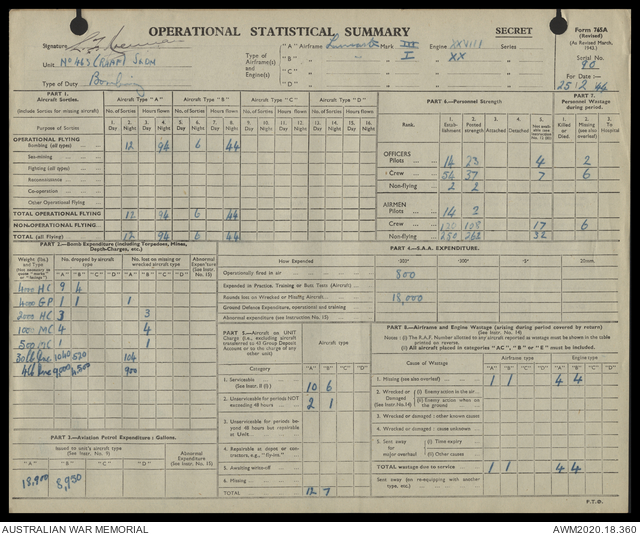 OPERATIONAL STATISTICAL SUMMARY
SECRET
Form 765A
(Revised)
(As Revised March, 1943.)
Signature
Unit. No 463 (RAAF) Sqdn
Type of Duty Bombing
Type of Airframe(s) and Engine(s):
"A" Airframe Lancaster Mark III Engine XXVIII Series
"B" I XX
"C"
"D"
Serial No. 90
For Day:—
25/2 44
PART 1.
Aircraft Sorties.
Aircraft Type "A" Aircraft Type "B" Aircraft Type "C" Aircraft Type "D"
(Include Sorties for missing aircraft) No. of Sorties Hours flown No. of Sorties Hours flown No. of Sorties Hours flown No. of Sorties Hours flown
1. 2. 3. 4. 5. 6. 7. 8. 9. 10. 11. 12. 13. 14. 15. 16.
Purpose of Sorties Day Night Day Night Day Night Day Night Day Night Day Night Day Night Day Night
OPERATIONAL FLYING
Bombing (all types) 12 94 6 44
Sea-mining
Fighting (all types)
Reconnaissance
Co-operation
Other Operational Flying
TOTAL OPERATIONAL FLYING 12 94 6 44
NON-OPERATIONAL FLYING
TOTAL (all flying) 12 94 6 44
PART 6.—Personnel Strength
Rank. 1. Establishment 2. Posted strength 3. Attached 4. Detached 5.
OFFICERS
Pilots 14 23 4 2
Crew 54 37 7 6
Non-flying 2 2
AIRMEN
Pilots 14 2
Crew 130 108 17 6
Non-flying 250 262 32
PART 7.
Personnel Wastage during period.
1. Killed or Died. 2. Missing (see also overleaf) 3. To Hospital
PART 2.—Bomb Expenditure (including Torpedoes, Mines, Depth-Charges, etc.)
Weight (lbs.) and Type No. dropped by aircraft type No. lost on missing or wrecked aircraft type Abnormal Expenditure (See Instr. No. 15)
"A" "B" "C" "D" "A" "B" "C" "D"
4000 HC 9 4
4000 GP 1 1 1
2000 HC 3 3
1000 MC 4 4
500 MC 1 1
30lb Inc 1040 520 104
4lb Inc 9000 4500 900
PART 3.—Aviation Petrol Expenditure: Gallons.
Issued to unit's aircraft type
(See Instr. No. 9)
Abnormal Expenditure
(See Instr. No. 15)
"A" "B" "C" "D"
18,900 8,950
PART 4.—S.A.A. EXPENDITURE.
How Expended ·303" ·300" ·5" 20mm.
Operationally fired in air 800
Expended in Practice, Training or Butt Tests (Aircraft)
Rounds lost on Wrecked or Missing Aircraft 18,000
Ground Defence Expenditure, operational and training
Abnormal expenditure (see Instruction No. 15)
PART 5.—Aircraft on UNIT Charge (i.e., excluding aircraft transferred to 40 Group Deposit Account or to the charge of any other unit)
Aircraft type
Category "A" "B" "C" "D"
1. Serviceable 10 6
(See Instr. 8 (i).)
2. Unserviceable for periods NOT exceeding 48 hours 2 1
3. Unserviceable for periods beyond 48 hours but repairable at Unit.
4. Repairable at depot or contractors, e.g., "fly-ins."
5. Awaiting write-off
6. Missing
TOTAL 12 7
PART 8.—Airframe and Engine Wastage (arising during period covered by return)
(See Instr. No. 14)
Notes: (i) The R.A.F. Number allotted to any aircraft reported as wastage must be shown in the table printed on reverse.
(ii) All aircraft placed in categories "AC", "B" or "E" must be included.
Cause of Wastage Airframe type Engine type
"A" "B" "C" "D" "A" "B" "C" "D"
1. Missing (see also overleaf) 1 1 4 4
2. Wrecked or Damaged (See Instr. No.14) (i) Enemy action in the air
(ii) Enemy action when on the ground
3. Wrecked or damaged: other known causes
4. Wrecked or damaged: cause unknown
5. Sent away for major overhaul (i) Time expiry
(ii) Other causes
TOTAL wastage due to service 1 1 4 4
Sent away (on re-equipping with another type, etc.)
P.T.O.
AUSTRALIAN WAR MEMORIAL
AWM2020.18.360